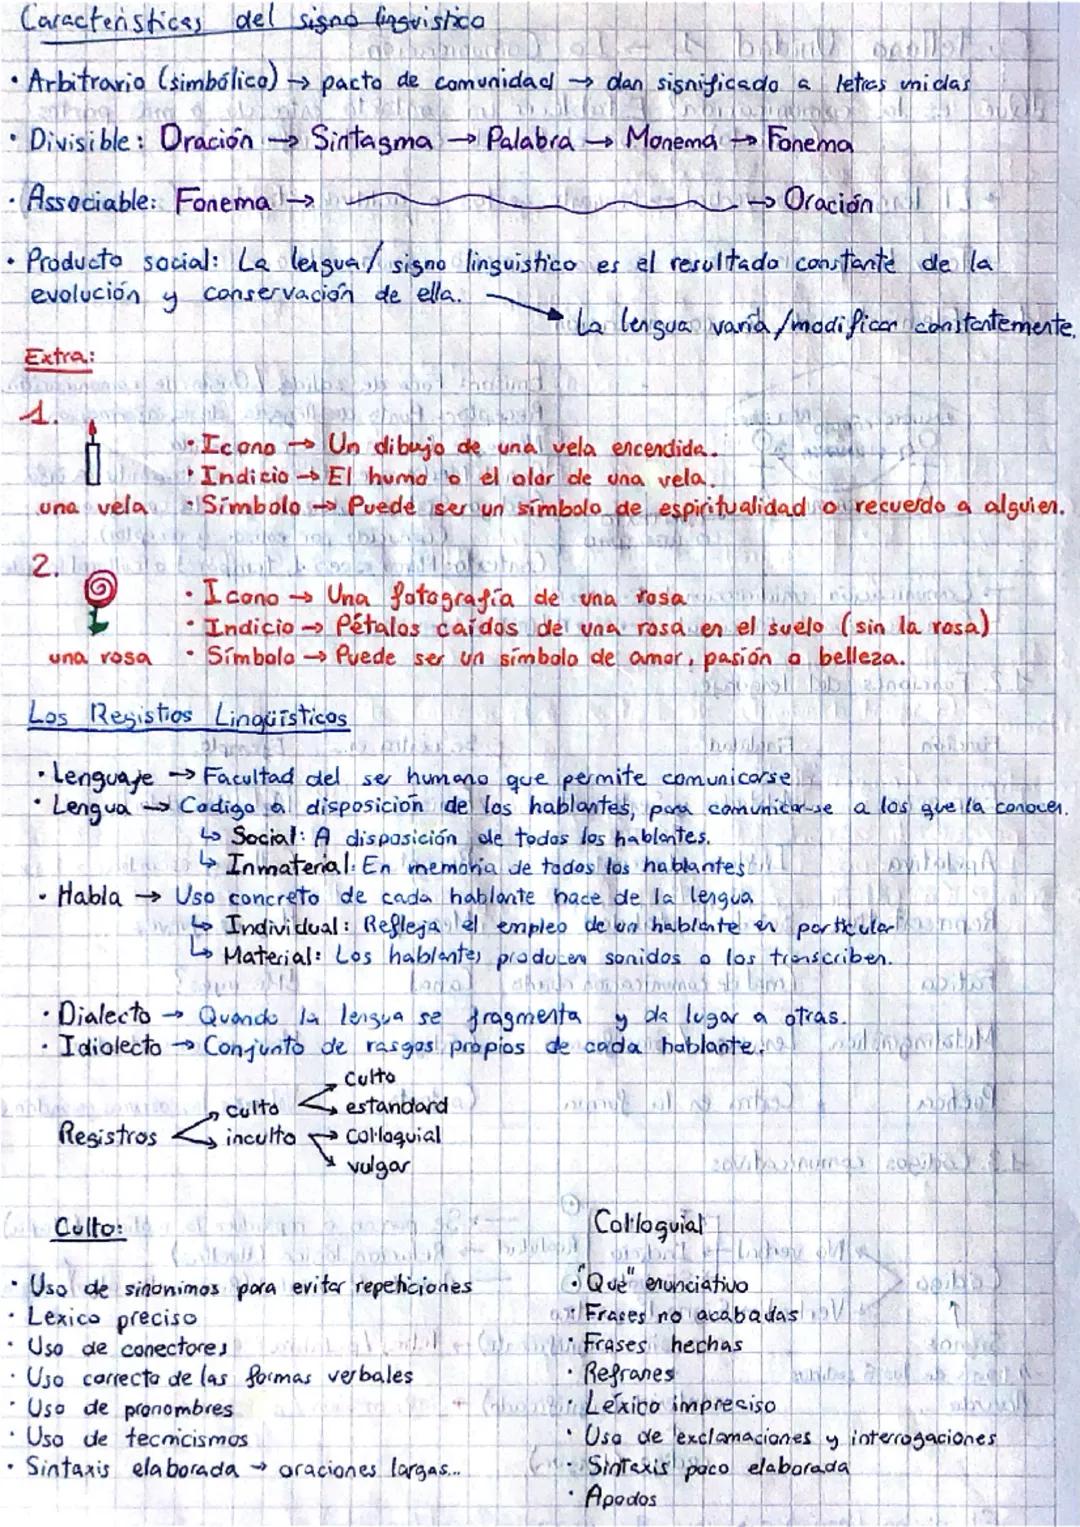 Características del signo lingüístico
• Arbitrario (simbólico) → pacto de comunidad → dan significado a letras unidas
• Divisible: Oración → Sintagma → Palabra → Monema → Fonema
• Associable: Fonema → → Oración
• Producto social: La lengua/signo linguistico es el resultado constante de la
evolución y conservación de ella.
La lengua varía/modificar constantemente.
Extra:
1.
• Icono → Un dibujo de una vela encendida.
• Indicio → El humo o el olor de una vela.
una vela • Símbolo → Puede ser un símbolo de espiritualidad o recuerdo a alguien.
2.
• Icono → Una fotografía de una rosa
• Indicio → Pétalos caídos de una rosa en el suelo (sin la rosa)
una rosa • Símbolo → Puede ser un símbolo de amor, pasión o belleza.
Los Registros Lingüísticos
• Lenguaje → Facultad del ser humano que permite comunicarse
• Lengua → Codigo a disposición de los hablantes, para comunicar-se a los que la conocen.
↳ Social: A disposición de todos los hablantes.
↳ Inmaterial: En memória de todos los hablantes
• Habla → Uso concreto de cada hablante hace de la lengua
↳ Individual: Refleja el empleo de un hablante en particular
↳ Material: Los hablantes producen sonidos o los transcriben.
• Dialecto → Quando la lengua se fragmenta y da lugar a otras.
• Idiolecto → Conjunto de rasgos propios de cada hablante.
Culto
culto estandard
Registros inculto Col·loquial
vulgar
Culto: Col·loquial
• Uso de sinónimos para evitar repeticiones
• Lexico preciso
• Uso de conectores
• Uso correcto de las formas verbales
• Uso de pronombres
• Uso de tecnicismos
• Sintaxis elaborada → oraciones largas...
• "Que" enunciativo
• Frases no acabadas
• Frases hechas
• Refranes
• Léxico impreciso
• Uso de exclamaciones y interrogaciones
• Sintaxis poco elaborada
• Apodos